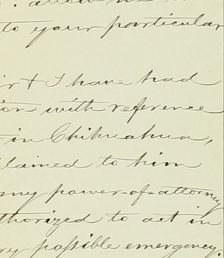 to your particular
ir & I have had
ion with reference
in Chihuahua,
lained to him
my power-of-attorney
thorized to act in
ry possible emergency,